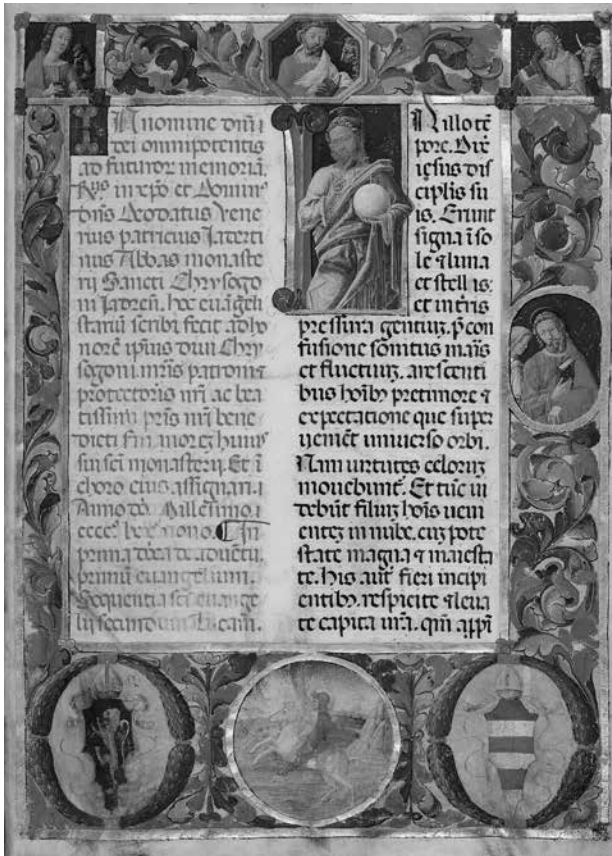 In nomine dni
dei omnipotentis
ad futuror memoriā.
in xpo et Domin
dns Deodatus Vene
rius patricius Jaderti
nus Abbas monaste
rij Sancti Chrysogo
ni Jadreñ. hoc euāgeli
stariū scribi fecit ad ho
norē ipius diui Chry
sogoni nr̄is patroni ⁊
protectoris nr̄i ac bea
tissimi pr̄is nr̄i bene
dicti sm morez huius
sui sc̄i monasterij. Et ī
choro eius assignari.
Anno do. Millesimo.
cccc° nono. In
prima de aduētu.
primū euangelium.
Sequentia sc̄i euange
lij secundum lucam.
In illo tē
pore. Dix
iesus dis
ciplis su
is. Erunt
signa ī so
le ⁊ luna
et stellis:
et in tr̄is
pressura gentiuz. p̄ con
fusione sonitus mar̄is
et fluctuuz. arescenti
bus hoib9 pre timore ⁊
expectatione que super
uenient uniuerso orbi.
Nam uirtutes celoruz
mouebunt. Et tūc ui
debūt filiuz hois ueni
entez in nube. cuz pote
state magna ⁊ maiesta
te. his aut fieri incipi
entib9. respicite ⁊ leua
te capita ura. qm̄ appi